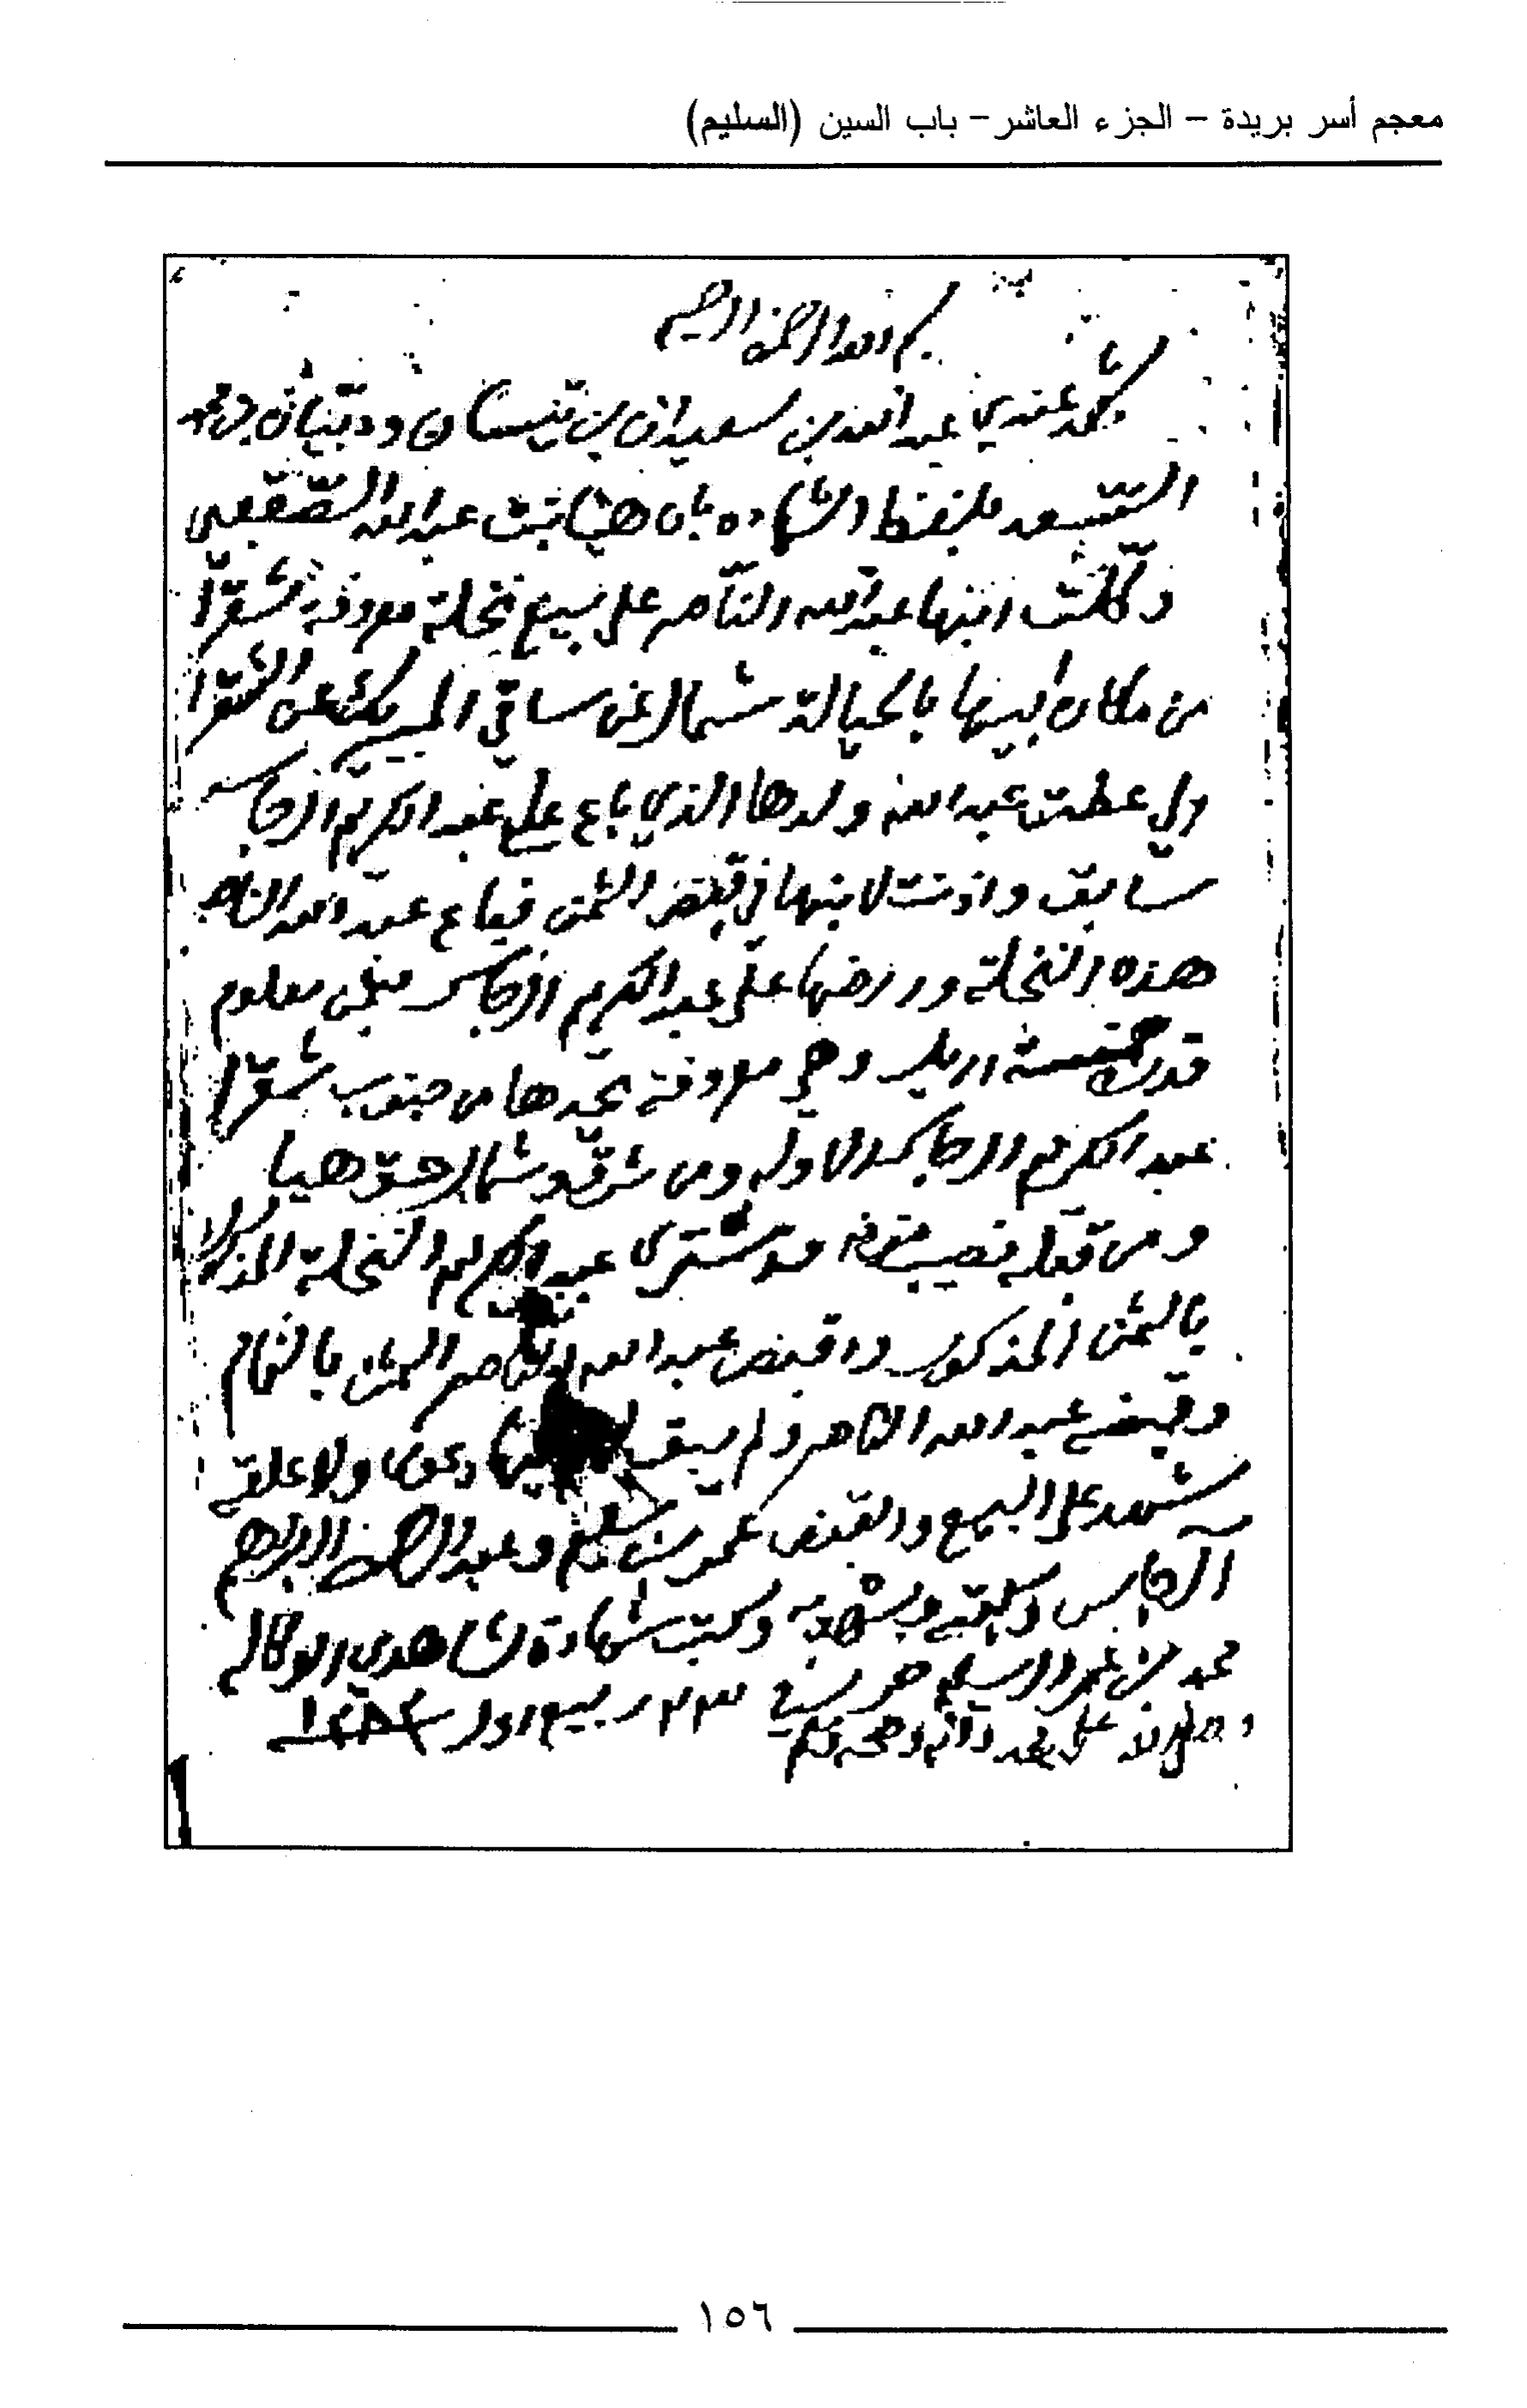 معجم أسر بريدة – الجزء العاشر – باب السين (السليم)
بسم الله الرحمن الرحيم
شهد عندي عبدالله بن سعيدان بن
بلفظ الشهادة بان هيا بنت عبدالله الصقعبي
وكلت ابنها عبدالله الناصر على بيع نخلة معروفة شقرا
من مكان ابيها بالحيالة شمال عن ساقي عن الشقرا
الي عطت عبدالله ولدها الذي باع على عبدالكريم الجاسر
سابق واذنت لابنها في قبض الثمن فباع عبدالله الناصر
هذه النخلة وارضها على عبدالكريم الجاسر بثمن معلوم
قدره خمسة اريل وهي معروفة يحدها من جنوب شقرا
عبدالكريم الجاسر الاوله ومن شرق وشمال حق هيا
ومن قبله فاشترى عبدالكريم النخلة المذكورة
بالثمن المذكور واقبض عبدالله الناصر الثمن بالتمام
وقبضه عبدالله الناصر ولم يبق دعوى ولا علقه
شهد على البيع والقبض عمر بن سليم وعبدالرحمن البراهيم
الجاسر وكتبه وشهد به وكتب شهادة شاهدي الوكالة
محمد بن عمر السليم حرر في ٢٣ ربيع اول
وصلى الله على محمد واله وصحبه وسلم
١٥٦